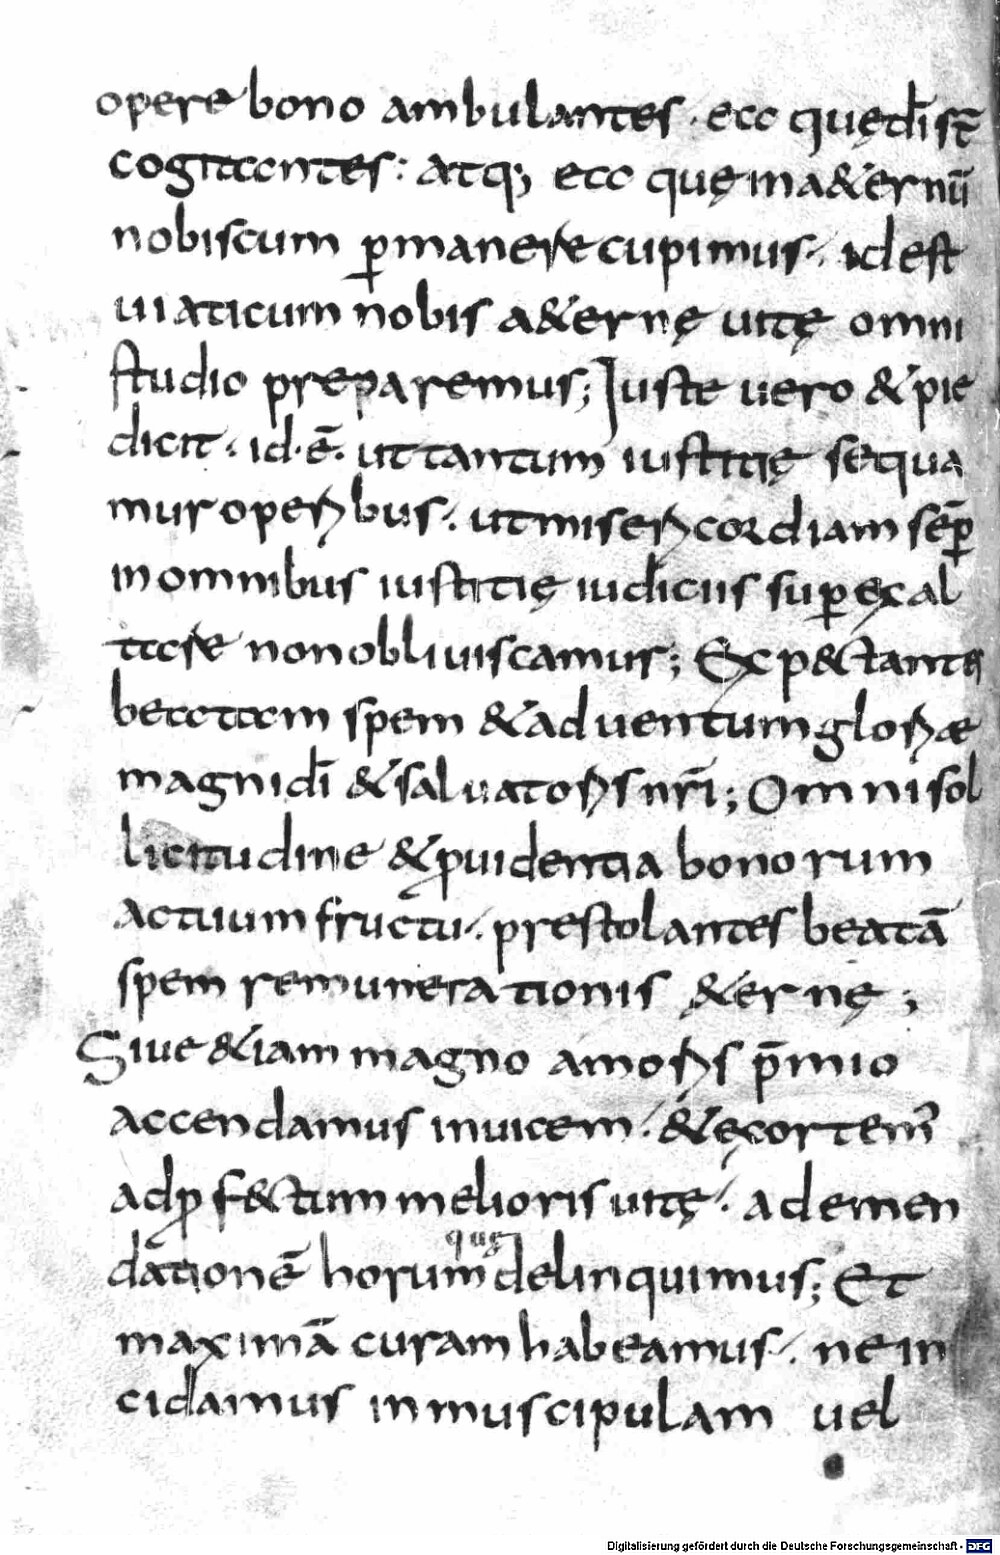 opere bono ambulantes · ea quędī st̄
cogitantes : atq; ea quę in a&ernū
nobiscum ꝑmanere cupimus ·, id est
uiaticum nobis a&ernę uitę omni
studio preparemus ; Iuste uero & pie
dicit · id · ē · ut tantum iustitię sequa
mur operibus ·, ut misericordiam sēꝑ
in omnibus iustitię iudiciis suꝑexal
tare non obliuiscamus ; Exp&ctantes
beatam spem & aduentum gloriae
magni dī & saluatoris nr̄i ; Omni sol
licitudine & ꝓuidentia bonorum
actuum fructu ·, prestolantes beatā
spem remunerationis &ernę ;
Siue &iam magno amoris p̄mio
accendamus inuicem ·, & exortem᾽
ad ꝓf&ctum melioris uitę ·, ad emen
dationē horum quę delinquimus ; Et
maximā curam habeamus ·, ne in
cidamus in muscipulam uel
Digitalisierung gefördert durch die Deutsche Forschungsgemeinschaft · DFG